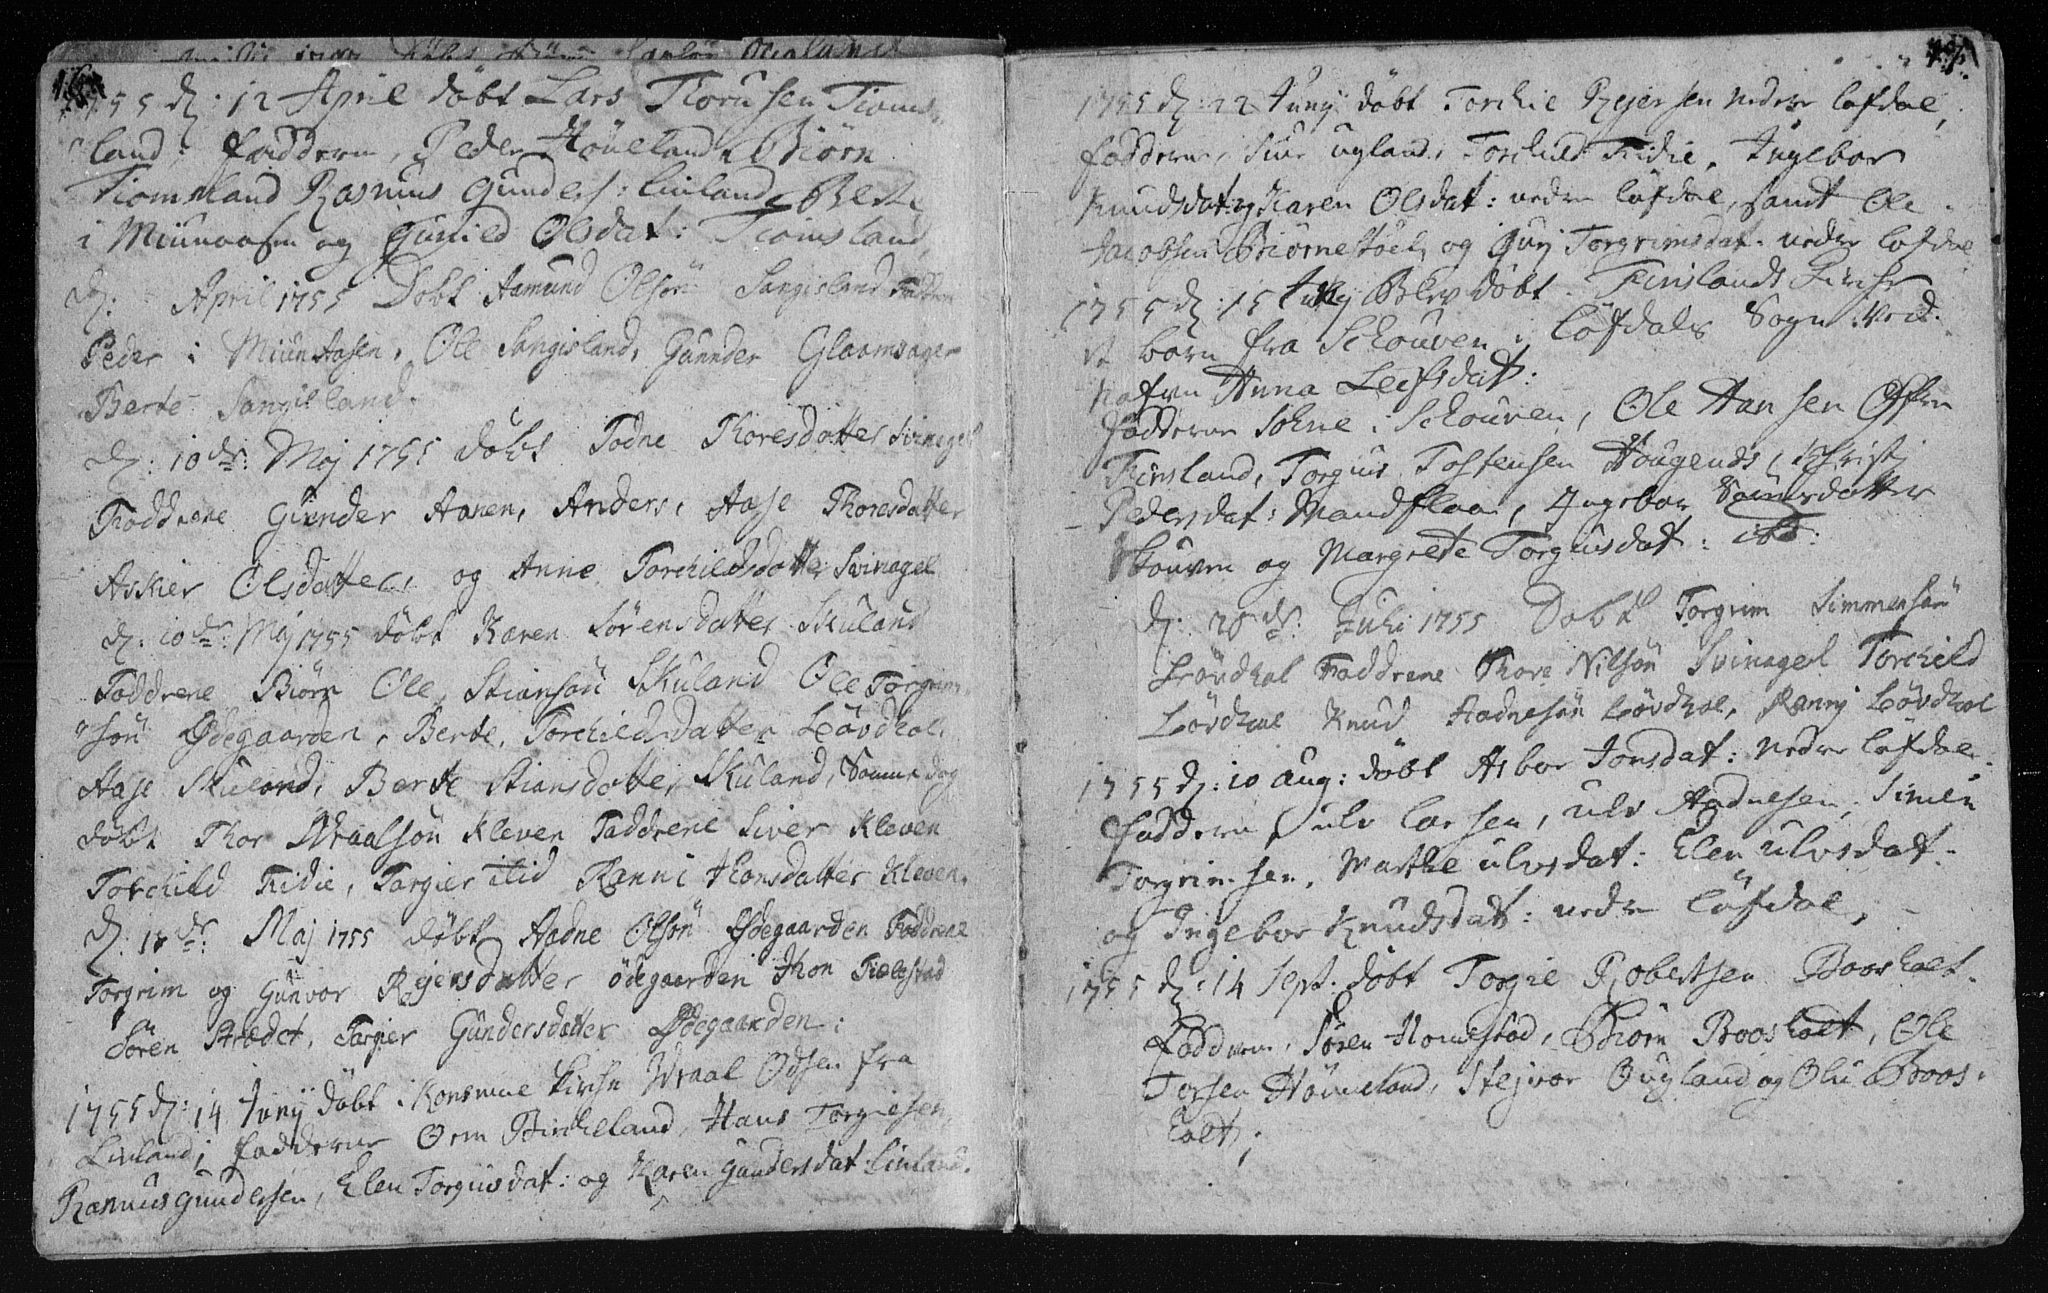 1755 d: 12 April döbt Lars Thorusen Tioms-
land, faddern, Peder Höueland, Biörn
Tiomsland Rasmus Gunders: Linland, Berte
i Miunaasen og Gunild Olsdat: Tiomsland,
d: April 1755 Dobt Aamund Olsön Sangisland Faddern
Peder i Miunaasen, Ole Sangisland, Gunnder Glaamsager
Berte Sangisland.
d: 10de: Maj 1755 döbt Todne Thoresdatter Svinagel
Faddrene Gunder Aanen, Anders, Aase Thoresdatter
Askier Olsdatter, og Anne Torchildsdatter Svinagel
d: 10de: Maj 1755 döbt Karen Sörensdatter Skuland
Faddrene Biörn Ole, Stiansön Skuland Ole Torgrim-
sön Ødegaarden, Berte, Torchildsdatter Lövdhal.
Aase Skuland, Berte Stiansdatter Skuland, Samme dag
döbt Thor Wraalsön Kleven Faddrene Siver Kleven
Torchild Fidie, Targier ibid Ranni Thorsdatter Kleven.
d: 18de: Maj 1755 döbt Aadne Olsön Ødegaarden Faddrene
Torgrim og Gunvor Rejersdatter ödegaarden Jhon Fielestad
Sören Strædet, Targier Gundersdatter Ødegaarden:
1755 d: 14 Juny döbt i Konsmue Kirche Wraal Odsen fra
Linland; fadderne Orm Birckeland, Hans Torgiesen,
Rasmus Gundersen, Elen Torgiusdat: og Karen Gundersdat: Linland.
1755 d: 22 Juny döbt Torchie Rejersen nedre löfdal,
faddern, Siur ugland, Torchild Fidie, Ingebor
Knudsdat: og Karen Olsdat: nedre löfdal, samt Ole
Jacobsen Biörnestöel, og Gurj Torgrimsdat: nedre löfdal
1755 d: 15 July Blev döbt i Finslands Kirche
et barn fra Schouven i Löfdals Sogn ved
nafvn Anna Leefsdat:
faddern Sohne i Schouven, Ole Hansen Øfre
Finsland, Torgius Tostensen Hougends, Christj
Pedersdat: Mandflaa, Ingebor Samsdatter
Skouven og Margrete Torgiusdat: ibd:
d: 20de: Juli 1755 Dobt Torgrim Simmensön
Lövdhal Faddrene Thore Nilsön Svinagel Torchild
Lövdhal Knud Aadnesön Lövdhal, Ranny Lövdhal
1755 d: 10 aug: döbt Asbor Jonsdat: nedre löfdal.
faddern, ulv Larsen, ulv Aadnesen, Simen
Torgrimsen, Marthe ulvsdat: Elen ulvsdat:
og Ingebor Knudsdat: nedre löfdal,
1755 d: 14 Sept: döbt Torgie Robertsen Boosholt.
faddern, Sören Homestad, Biörn Boosholt, Ole
Torsen Hömeland, Stejvor Ougland og Oli Boos-
holt;